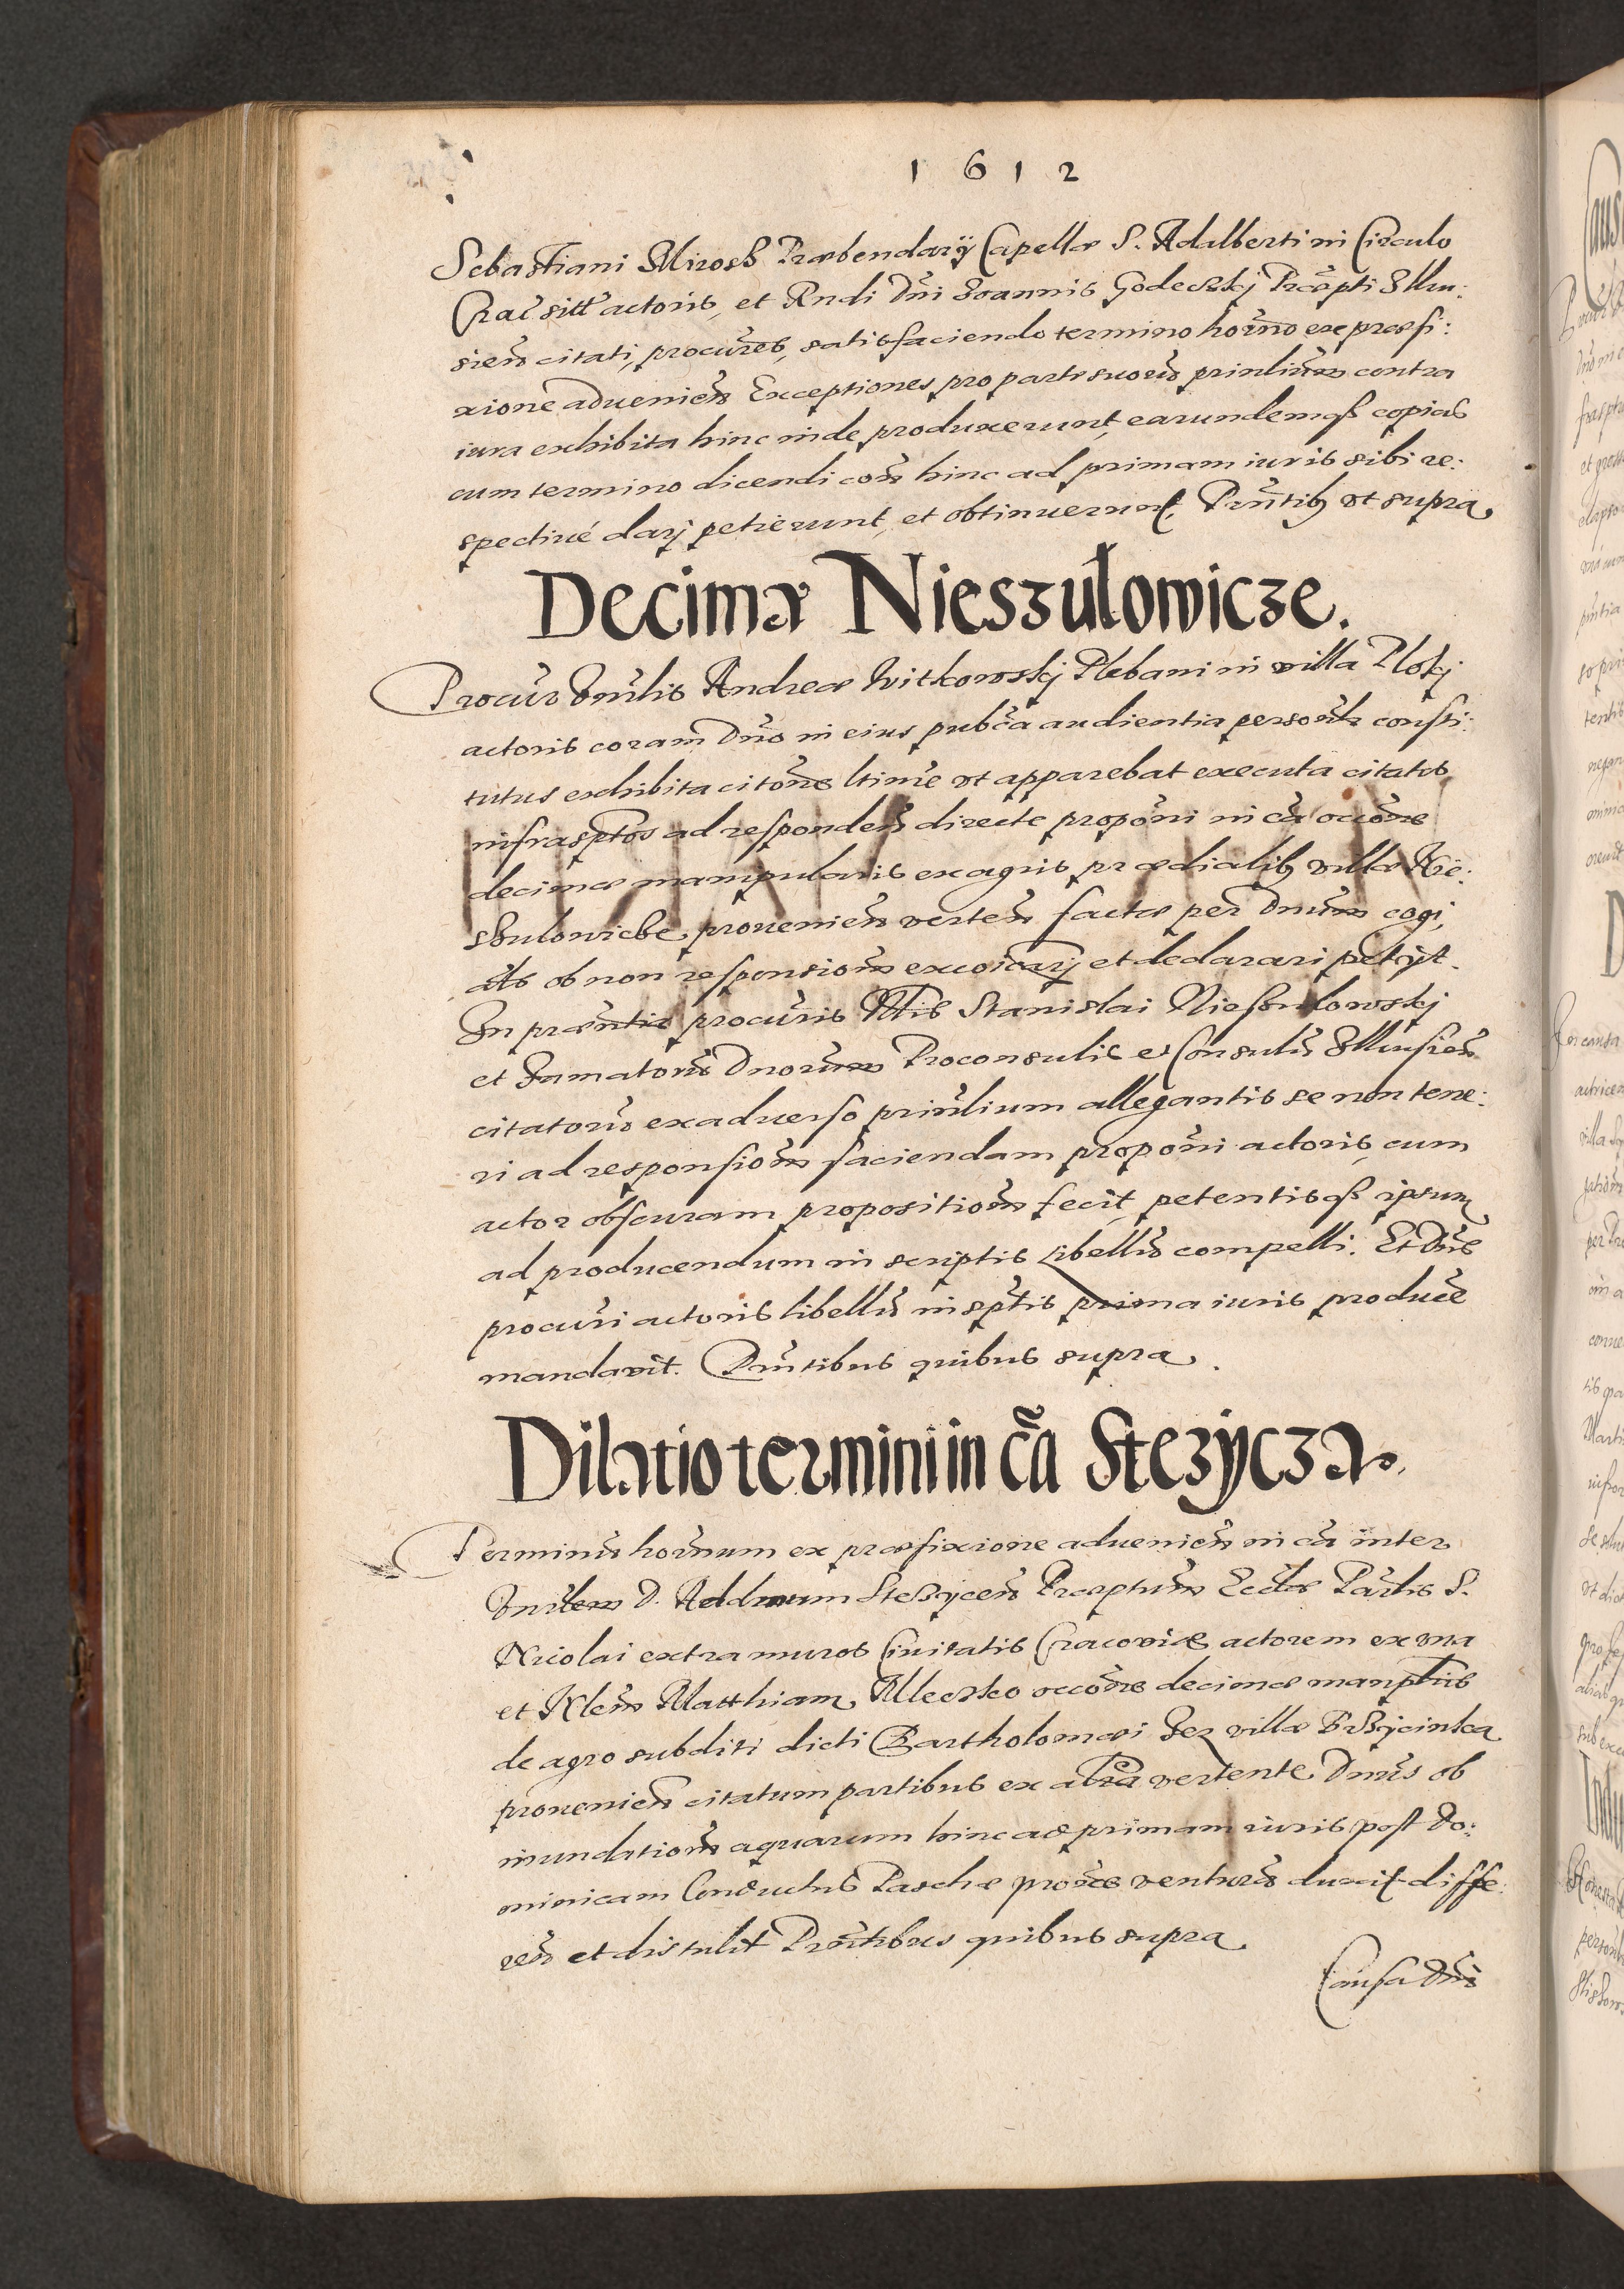 1612
Sebastiani Mirosz Præbendarij Capellæ S. Adalberti in Circulo
Crac̃ sitt̃ actoris, et Rñdi Dñi Joannis Godeczkj Præpti Illku:
sieñ citati, procur̃es, satisfaciendo termino horño ex præfi:
xione aduenieñ Exceptiones pro parte suorũ prinliũm contra
iura exhibita hinc inde produxerunt, earundemqꝫ copias
cum termino dicendi coñ hinc ad primam iuris sibi re:
spectiué darj petierunt, et obtinuerunt. Prñtibꝫ vt supra
Decimæ Nieszulowicze.
Procur̃ Vnr̃lis Andreæ Witkowskj Plebani in villa Ploki
actoris coram Dño in eius pubc̃a audientia persoñlr consti:
tutus exhibita citoñe ltime vt apparebat executa citatos
infrasp̃tos ad respondeñ directe propoñi in cã occoñe
decimæ manipularis ex agris prædialibꝫ villæ Nie:
szulowicze prouenieñ verteñ factæ per Dnũm cogi,
als̃ ob non responsioñm excõicarj et declarari petijt.
In præñtia procur̃is Nlis Stanislai Nieszulowskj
et Famatorũ Dnorum Proconsulis et Consulũ Illkusieñ
citatorũ ex aduerso prinlium allegantis se non tene:
ri ad responsioñm faciendam propoñi actoris, cum
actor obscuram propositioñm fecit, petentisqꝫ ipsum
ad producendum in scriptis libellũ compelli. Et Dñs
procur̃i actoris libellũ in sp̃tis prima iuris producẽ
mandavit. Prñtibus quibus supra.
Dilatio termini in cã Stezycza.
Terminũ horñum ex præfixione adueñieñ in cã inter
Vnrlem D. Adamum Stezyceñ Præptum Eccl̃æ Par̃lis S.
Nicolai extra muros Ciuitatis Cracoviæ actorem ex vna
et Nleñ Matthiam Mleczko occoñe decimæ manp̃lris
de agro subditi dicti Bartholomæi Zez villæ Brzycinka
proueñieñ citatum partibus ex altra vertente Dnũs ob
inundatioñm aquarum hinc ad primam iuris post Do:
minicam Conductus Paschæ proxe venturũ duxit diffe:
reñ et distulit Præñtibus quibus supra
Causa Dñi